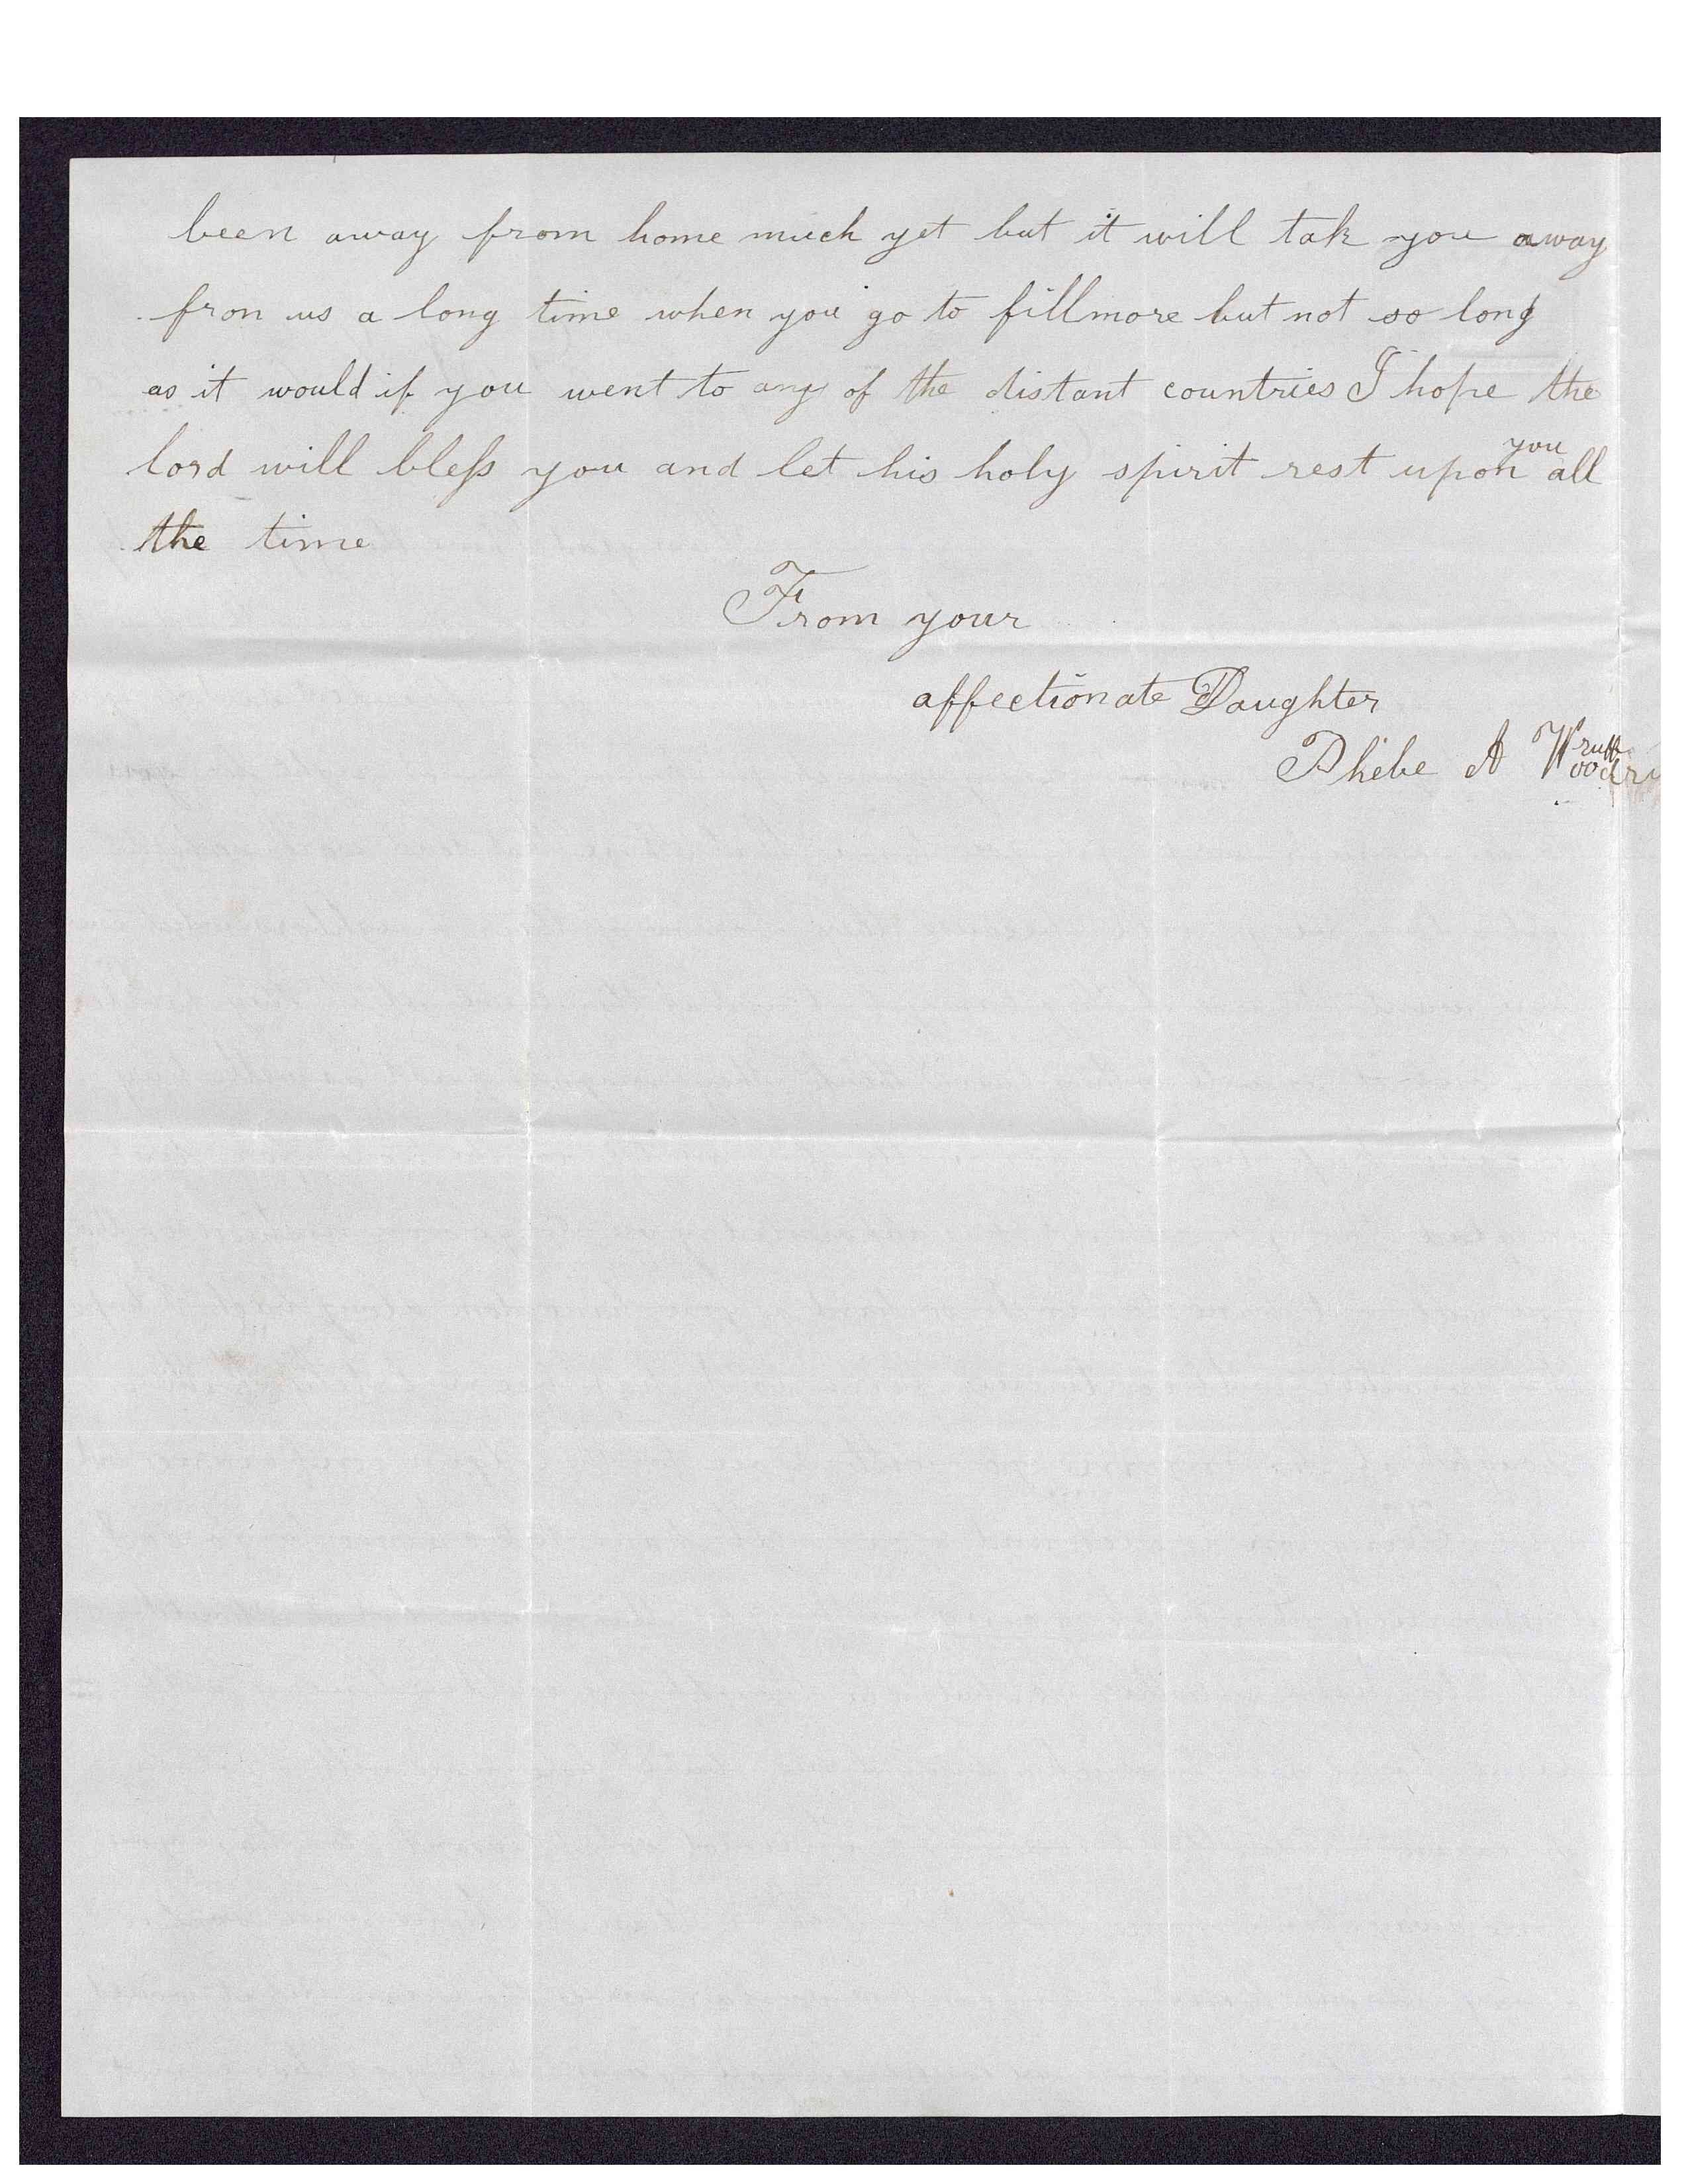 been away from home much yet but it will tak you away
fron us a long time when you go to fillmore but not so long
as it would if you went to any of the distant countries I hope the
lord will bleſs you and let his holy spirit rest upon you all
the time
From your
affectionate Daughter
Phebe A Woodruff